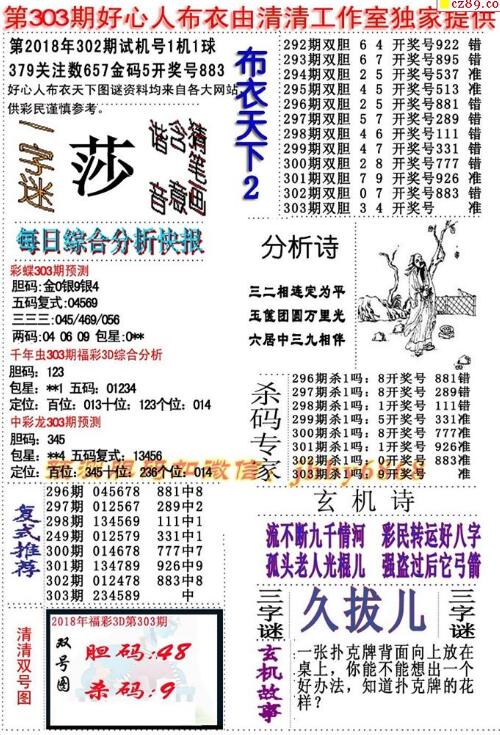 cz89.co
第303期好心人布衣由清清工作室独家提供
第2018年302期试机号1机1球
379关注数657金码5开奖号883
好心人布衣天下图谜资料均来自各大网站
供彩民谨慎参考。
一字谜
莎
猜笔画
含意
谐音
布衣天下2
292期双胆 6 4 开奖号922 错
293期双胆 6 7 开奖号895 错
294期双胆 2 0 开奖号537 错
295期双胆 4 5 开奖号513 准
296期双胆 2 5 开奖号881 错
297期双胆 5 7 开奖号289 错
298期双胆 4 6 开奖号111 错
299期双胆 4 7 开奖号331 错
300期双胆 2 8 开奖号777 错
301期双胆 7 9 开奖号926 准
302期双胆 0 7 开奖号883 错
303期双胆 3 4 开奖号 准
每日综合分析快报
彩蝶303期预测
胆码:金0银9银4
五码复式:04569
三三三:045/469/056
两码:04 06 09 包星:0**
千年虫303期福彩3D综合分析
胆码:123
包星:**1 五码:01234
定位:百位:013十位:123个位:014
中彩龙303期预测
胆码:345
包星:**4 五码复式:13456
定位:百位:345十位:236个位:014
分析诗
三二相连定为平
玉筐团圆万里光
六居中三九相伴
杀码专家
296期杀1吗:8开奖号 881错
297期杀1吗:8开奖号 289错
298期杀1吗:1开奖号 111错
299期杀1吗:5开奖号 331准
300期杀1吗:2开奖号 777准
301期杀1吗:5开奖号 926准
302期杀1吗:0开奖号 883准
303期杀1吗:9开奖号 准
复式推荐
296期 045678 881中8
297期 012567 289中2
298期 134569 111中1
249期 012579 331中1
300期 014678 777中7
301期 134789 926中9
302期 012478 883中8
303期 234589 中
玄机诗
流不断九千情河 彩民转运好八字
孤头老人光棍儿 强盗过后它弓箭
三字谜
久拔儿
三字谜
清清双号图
2018年福彩3D第303期
双号图
胆码:48
杀码:9
玄机故事
一张扑克牌背面向上放在
桌上,你能不能想出一个
好办法,知道扑克牌的花
样?